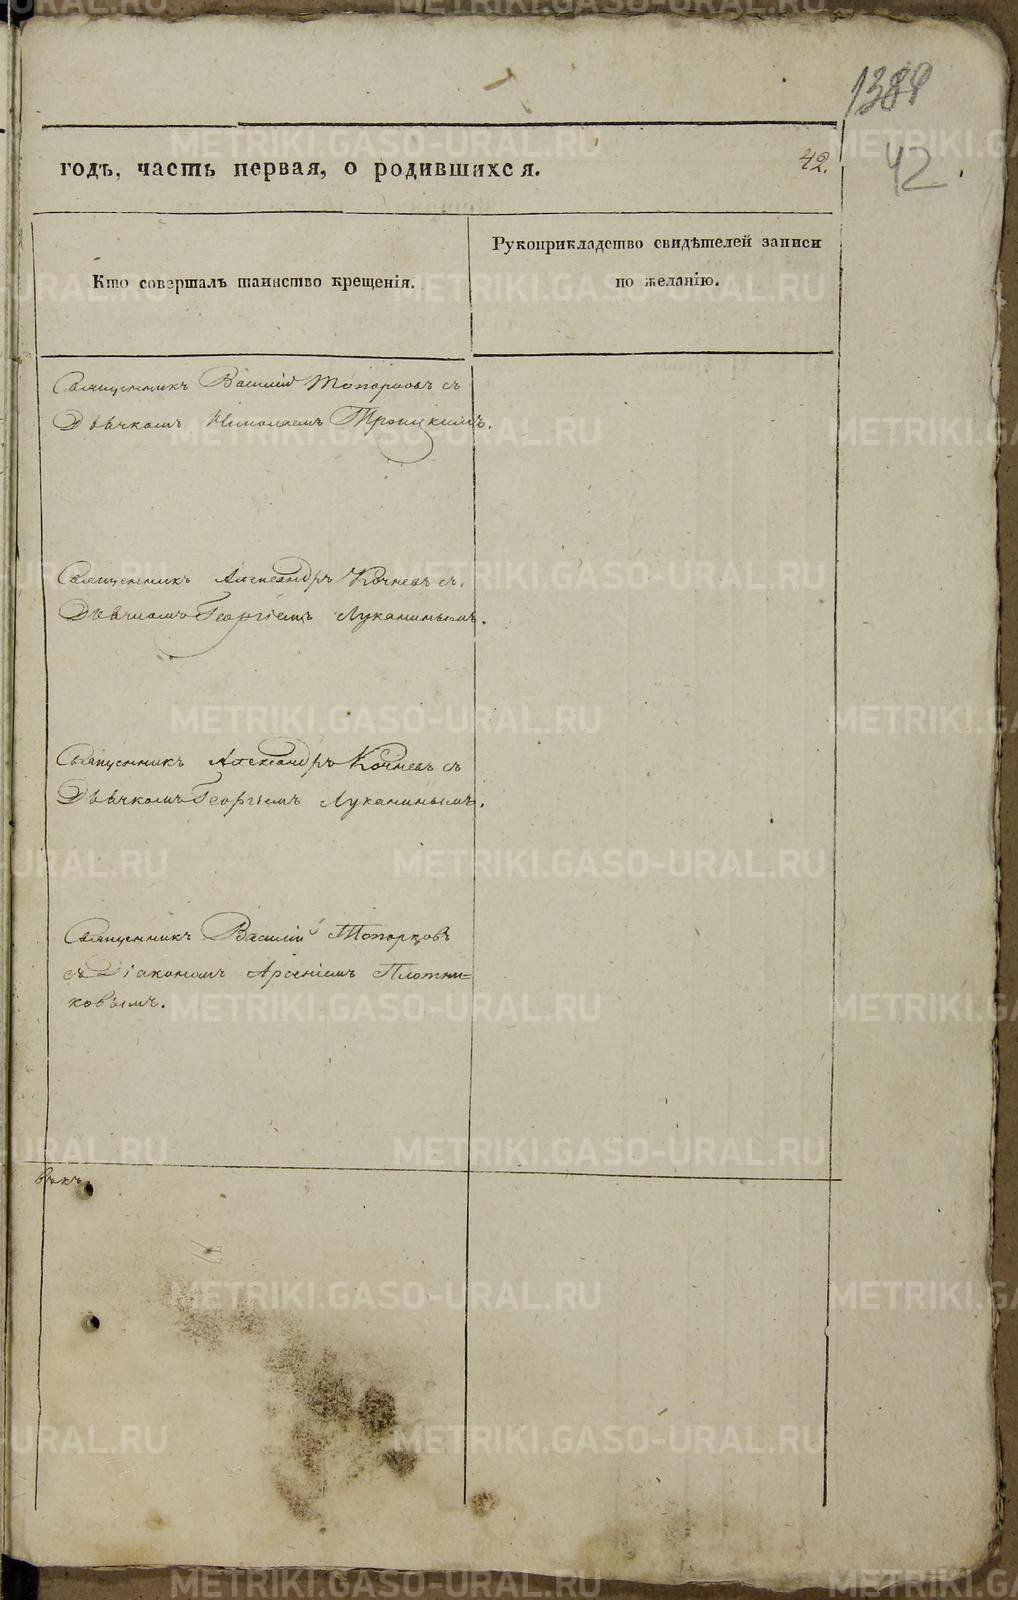 1388
годъ, часть первая, о родившихся.
42.
42.
Кто совершалъ таинство крещенія.
Рукоприкладство свидѣтелей записи
по желанію.
Священникъ Василій Топорковъ съ
Дьячкомъ Николаемъ Троицкимъ.
Священникъ Александръ Кочневъ съ
Дьячкомъ Георгіемъ Луканинымъ.
Священникъ Александръ Кочневъ съ
Дьячкомъ Георгіемъ Луканинымъ.
Священникъ Василій Топорковъ
съ Діакономъ Арсеніемъ Плотни=
ковымъ.
METRIKI.GASO-URAL.RU